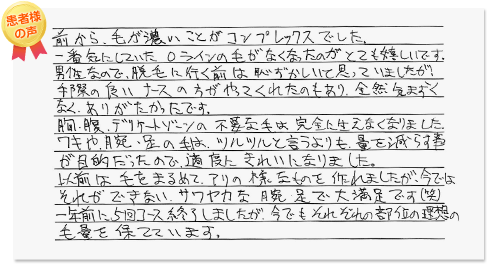 患者様
の声
前から、毛が濃いことがコンプレックスでした。
一番気にしていた Oラインの毛がなくなったのがとても嬉しいです。
男性なので、脱毛に行く前は恥ずかしいと思っていましたが、
手際の良いナースの方がやってくれたのもあり、全然気まずく
なく、ありがたかったです。
胸・腹、デリケートゾーンの不要な毛は完全に生えなくなりました。
ワキや、腕・足の毛は、ツルツルと言うよりも、量を減らす事
が目的だったので、適度にきれいになりました。
以前は毛をまるめて、アリの様なものを作れましたが、今では
それができない、サワヤカな腕・足で大満足です(笑)
一年前に、5回コース終了しましたが、今でもそれぞれの部位の理想の
毛量を保てています。